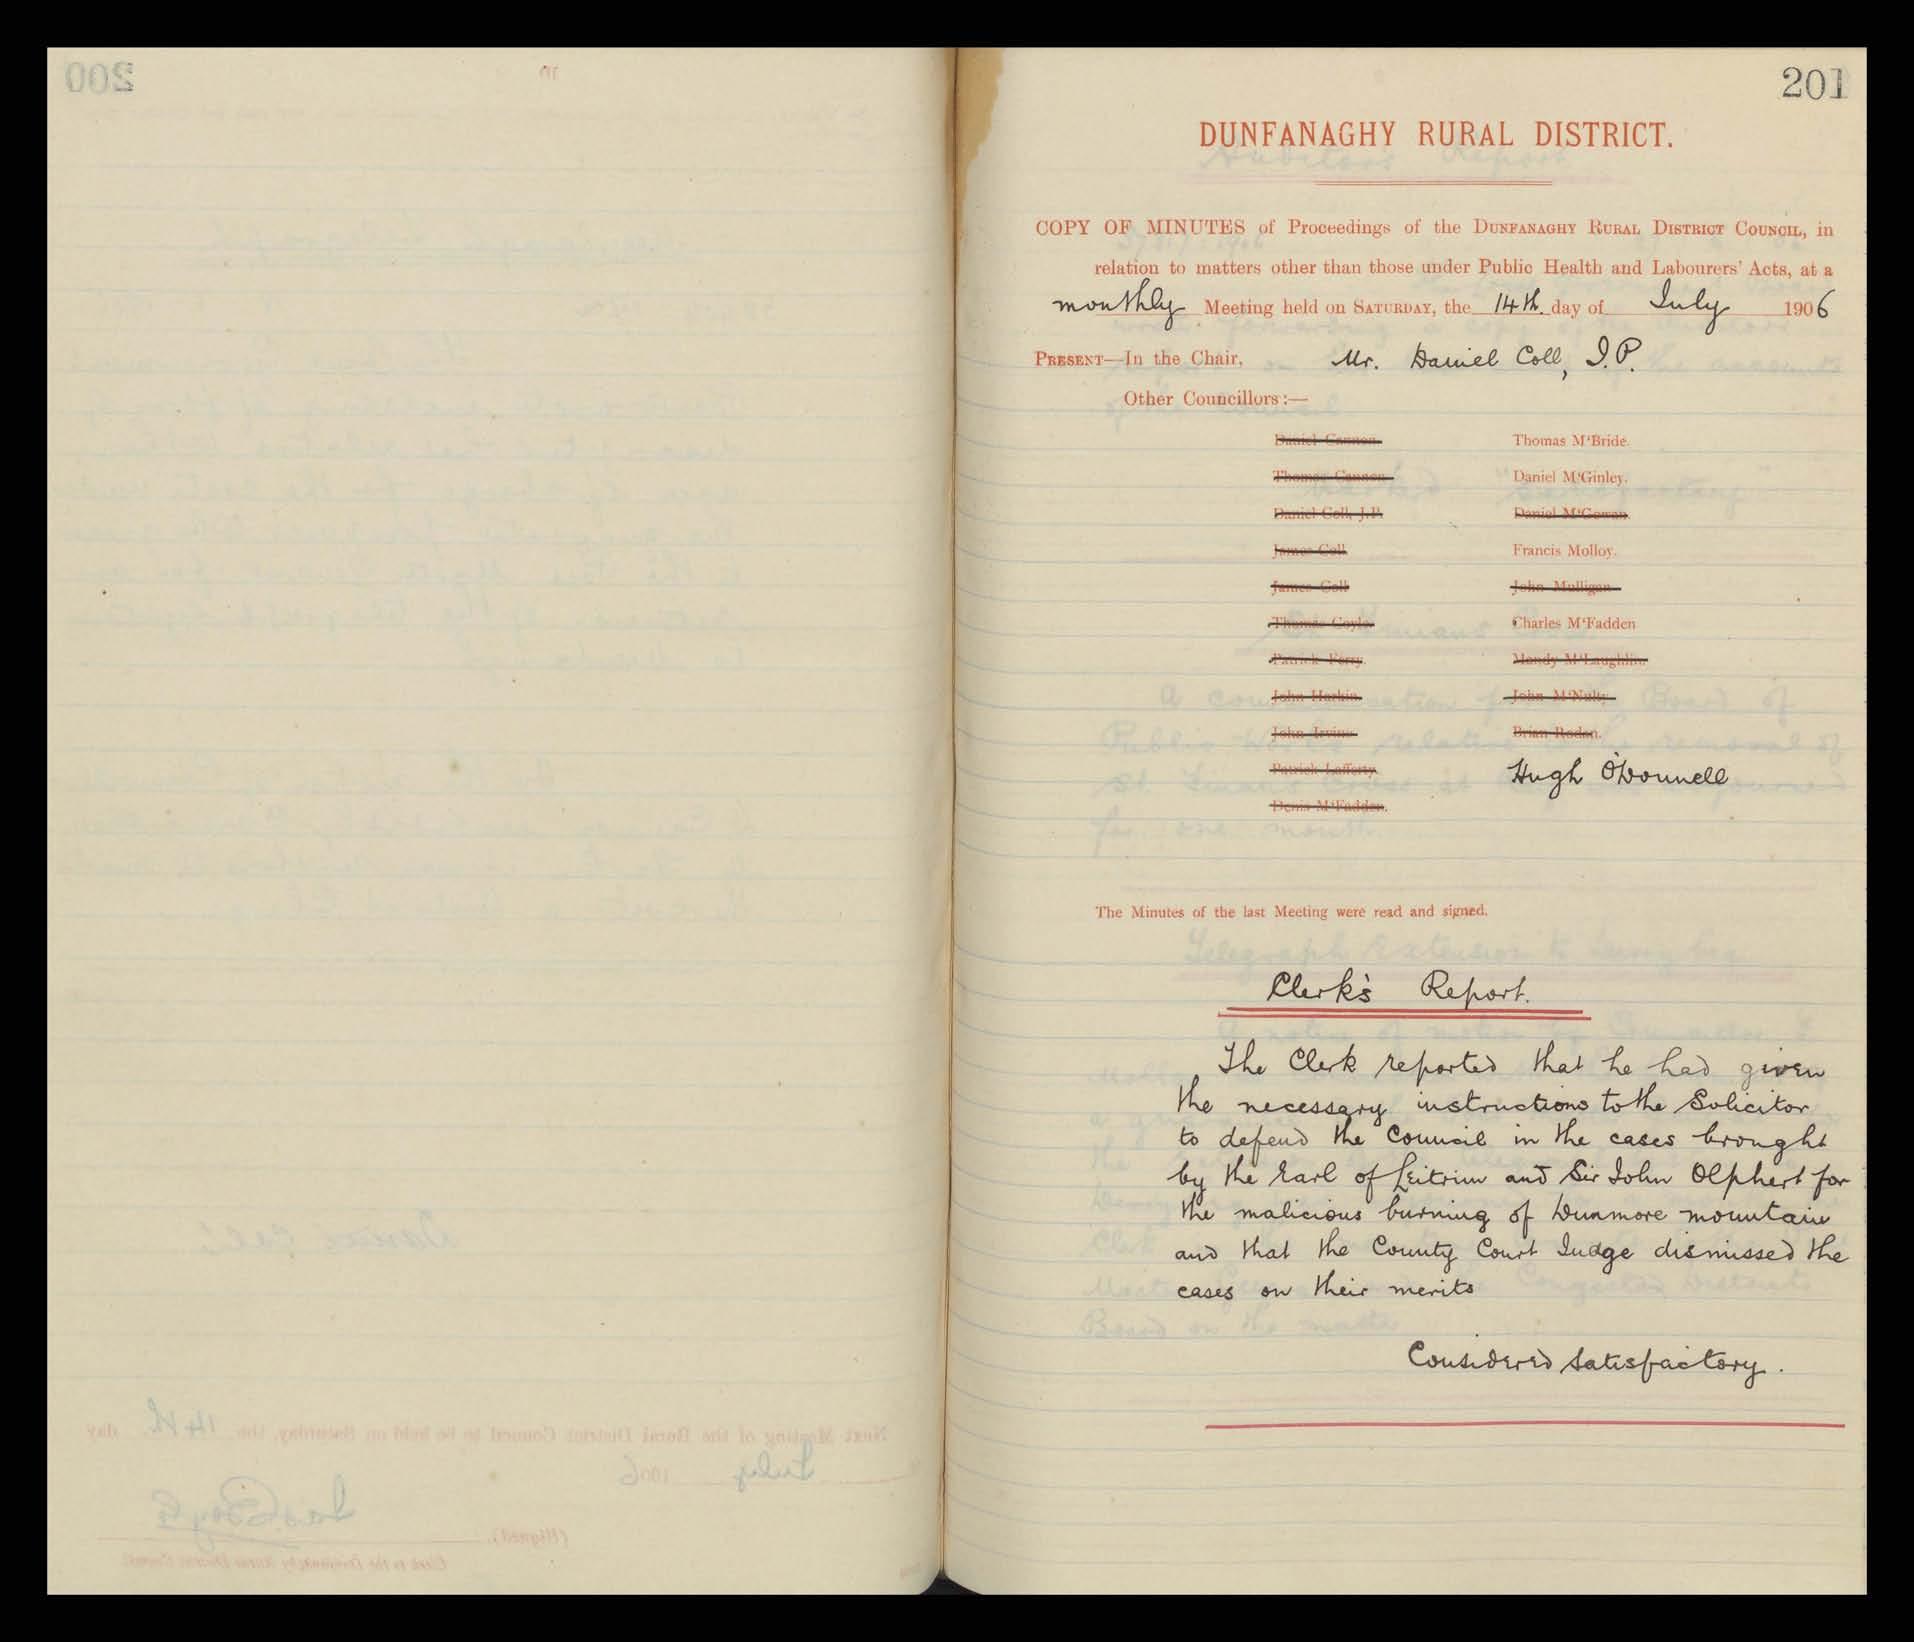 201
DUNFANAGHY RURAL DISTRICT.
COPY OF MINUTES of Proceedings of the DUNFANAGHY RURAL DISTRICT COUNCIL, in
relation to matters other than those under Public Health and Labourers' Acts, at a
monthly Meeting held on SATURDAY, the 14th. day of July 1906
PRESENT—In the Chair, Mr. Daniel Coll, J.P.
Other Councillors:—
Daniel Cannon. Thomas M'Bride.
Thomas Cannon. Daniel M'Ginley.
Daniel Coll, J.P. Daniel M'Gowan.
James Coll Francis Molloy.
James Coll John Mulligan
Thomas Coyle. Charles M'Fadden
Patrick Ferry. Mandy M'Laughlin.
John Harkin. John M'Nulty
John Irvine Brian Rodan.
Patrick Lafferty Hugh O'Donnell
Denis M'Fadden.
The Minutes of the last Meeting were read and signed.
Clerk's Report.
The Clerk reported that he had given
the necessary instructions to the Solicitor
to defend the Council in the cases brought
by the Earl of Leitrim and Sir John Olphert for
the malicious burning of Dunmore mountain
and that the County Court Judge dismissed the
cases on their merits
Considered satisfactory.